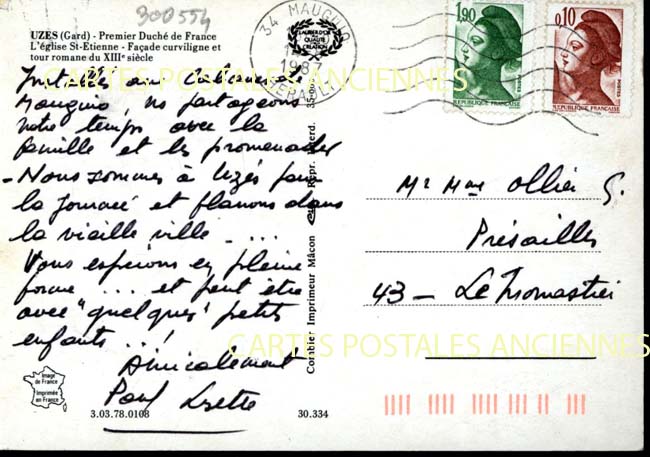 300554
UZES (Gard) - Premier Duché de France
L'église St-Etienne - Façade curviligne et
tour romane du XIIIe siècle
34 MAUGUIO
1987
HERAULT
LAURIER D'OR
QUALITÉ
CRÉATION
1,90
RÉPUBLIQUE FRANÇAISE
0,10
POSTES
RÉPUBLIQUE FRANÇAISE
CARTES POSTALES ANCIENNES
Installés au
Mauguio, ns partageons
notre temps avec la
famille et les promenades
- Nous sommes à Uzés pour
la journée et flanons dans
la vieille ville ....
Vous espérons en pleine
forme ... et peut être
avec "quelques" petits
enfants ...!
Amicalement
Paul
Mr Mme Ollier G.
Présailles
43 - Le Monastier
CARTES POSTALES ANCIENNES
Combier Imprimeur Mâcon
Image de France
Imprimée en France
3.03.78.0108
30.334